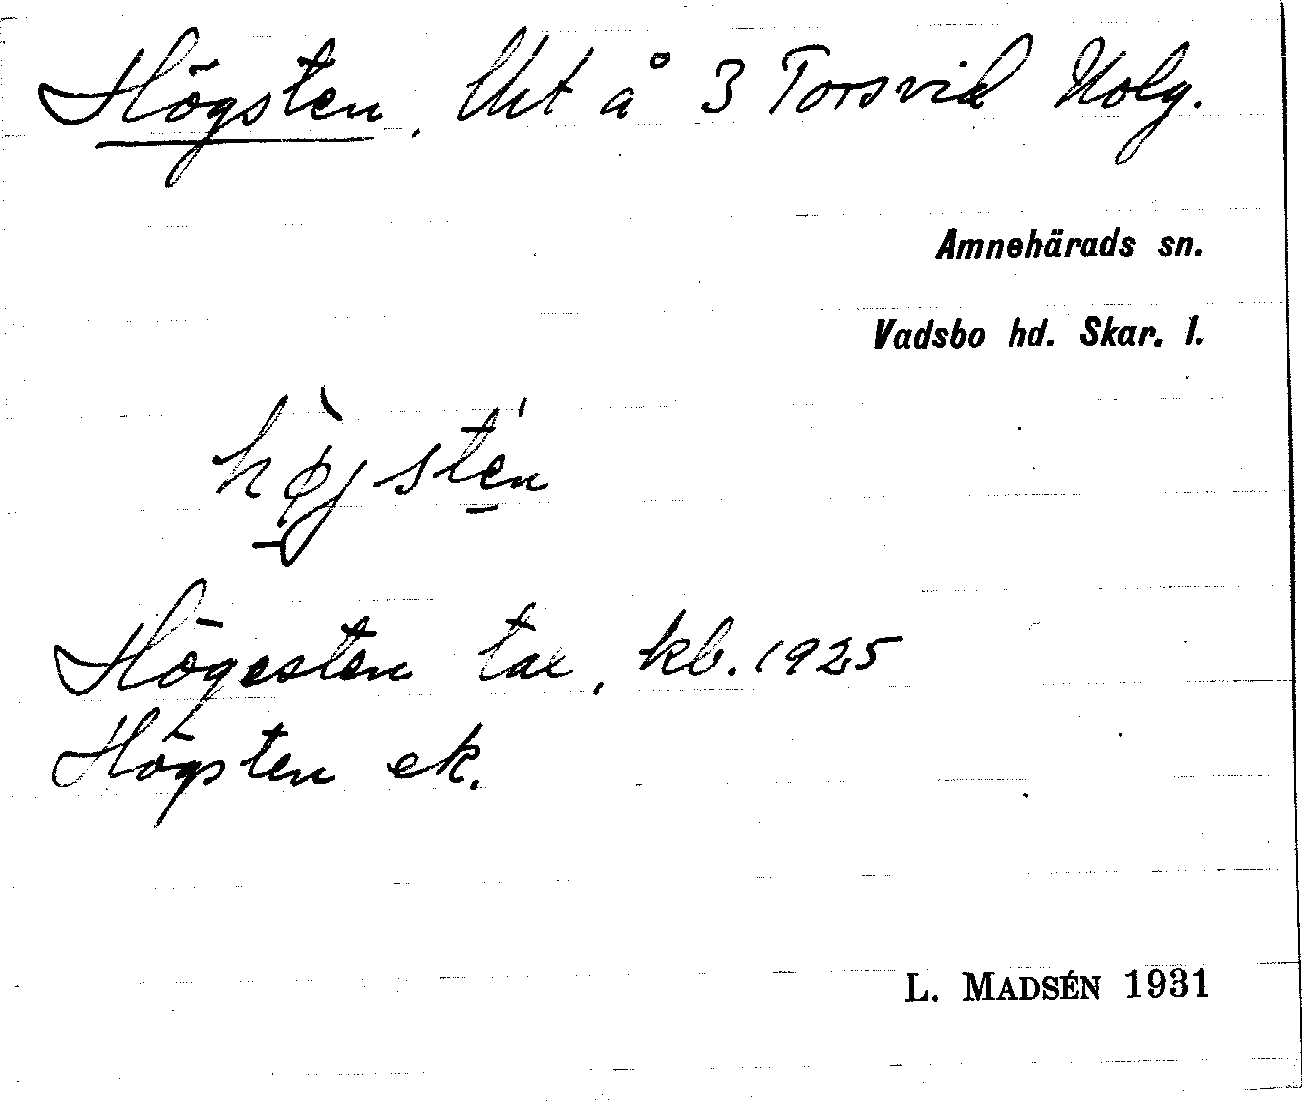 Högsten, Utt å 3 Torsvid Nolg.
Amnehärads sn.
Vadsbo hd. Skar. l.
hø̀jstén
Högesten tax, kb. 1925
Högsten ek.
L. MADSÉN 1931